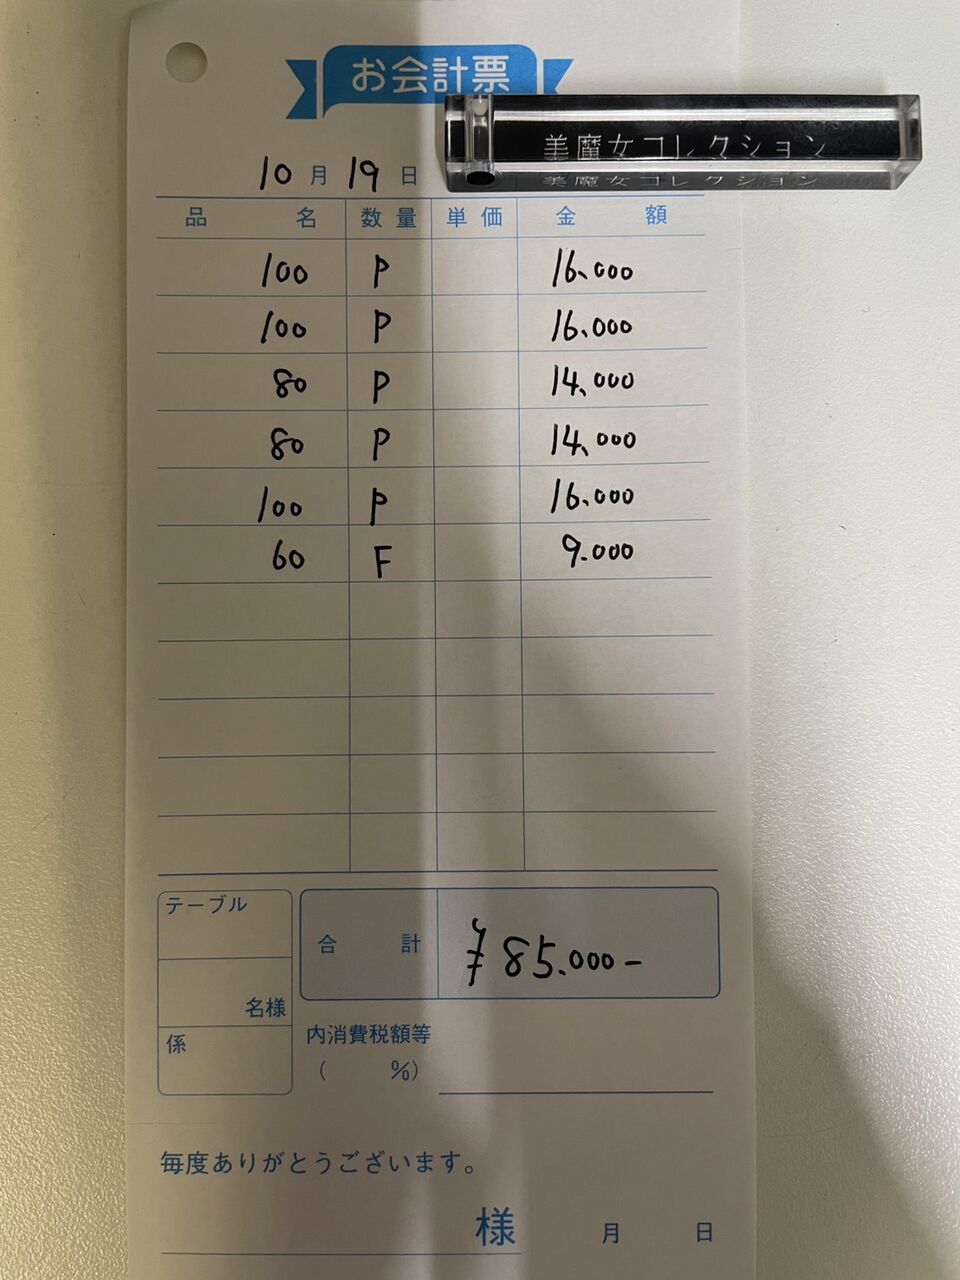 お会計票
美魔女コレクション
美魔女コレクション
10月19日
品名 数量 単価 金額
100 P 16.000
100 P 16.000
80 P 14.000
80 P 14.000
100 P 16.000
60 F 9.000
テーブル
合計 ¥85.000-
名様
係
内消費税額等
( %)
毎度ありがとうございます。
様 月 日